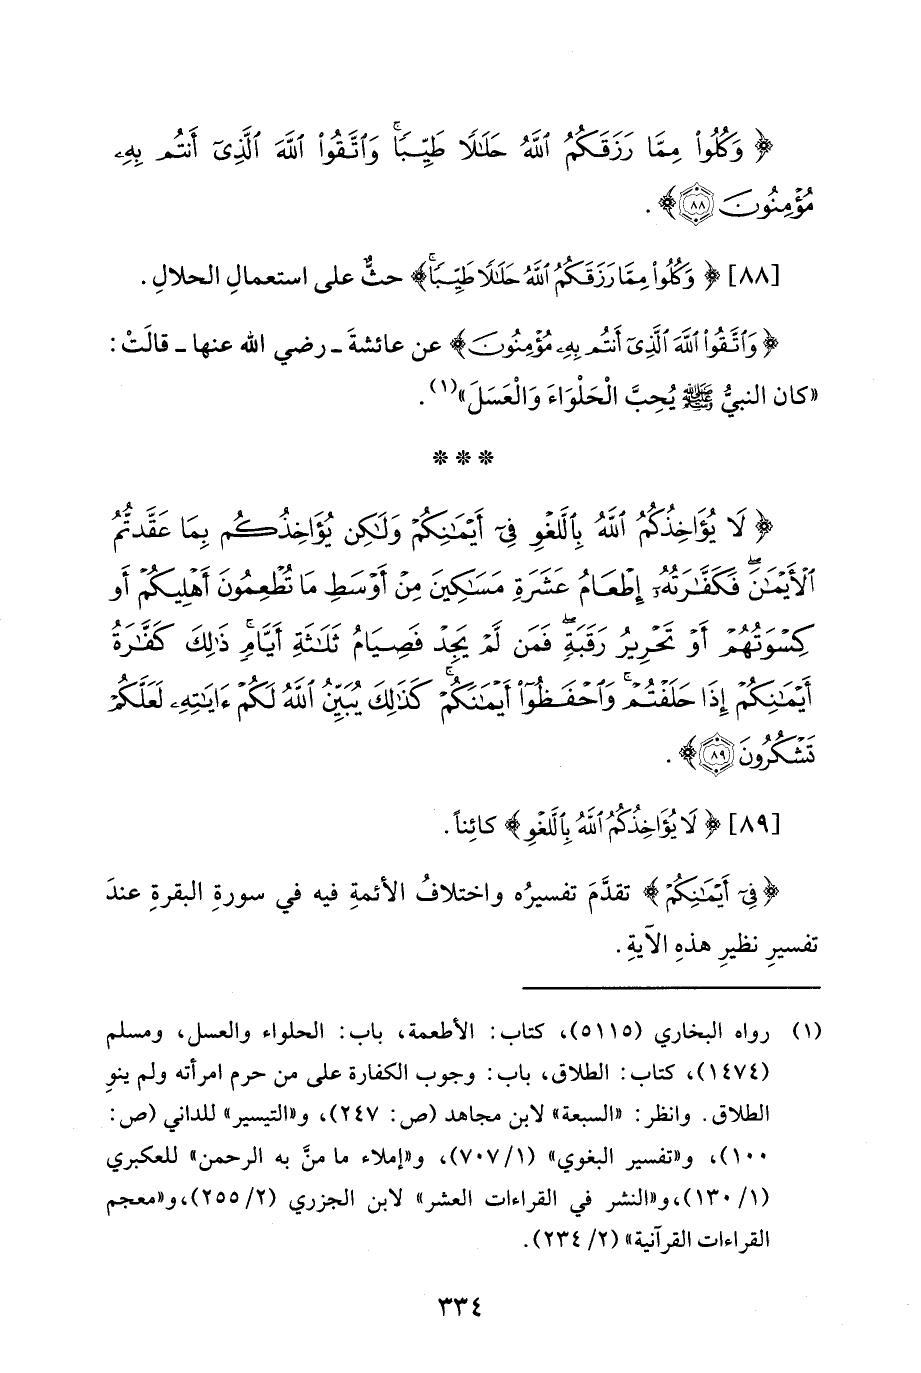 ﴿ وَكُلُواْ مِمَّا رَزَقَكُمُ ٱللَّهُ حَلَٰلًا طَيِّبًاۚ وَٱتَّقُواْ ٱللَّهَ ٱلَّذِىٓ أَنتُم بِهِۦ
مُؤْمِنُونَ ۝٨٨﴾ .
[٨٨] ﴿ وَكُلُواْ مِمَّا رَزَقَكُمُ ٱللَّهُ حَلَٰلًا طَيِّبًاۚ﴾ حثٌّ على استعمالِ الحلالِ .
﴿ وَٱتَّقُواْ ٱللَّهَ ٱلَّذِىٓ أَنتُم بِهِۦ مُؤْمِنُونَ ﴾ عن عائشةَ ـ رضي الله عنها ـ قالَتْ :
«كان النبيُّ ﷺ يُحِبَّ الْحَلْوَاءَ وَالْعَسَلَ»(١) .
* * *
﴿ لَا يُؤَاخِذُكُمُ ٱللَّهُ بِٱللَّغْوِ فِىٓ أَيْمَٰنِكُمْ وَلَٰكِن يُؤَاخِذُكُم بِمَا عَقَّدتُّمُ
ٱلْأَيْمَٰنَۖ فَكَفَّٰرَتُهُۥٓ إِطْعَامُ عَشَرَةِ مَسَٰكِينَ مِنْ أَوْسَطِ مَا تُطْعِمُونَ أَهْلِيكُمْ أَوْ
كِسْوَتُهُمْ أَوْ تَحْرِيرُ رَقَبَةٍۖ فَمَن لَّمْ يَجِدْ فَصِيَامُ ثَلَٰثَةِ أَيَّامٍۚ ذَٰلِكَ كَفَّٰرَةُ
أَيْمَٰنِكُمْ إِذَا حَلَفْتُمْۚ وَٱحْفَظُوٓاْ أَيْمَٰنَكُمْۚ كَذَٰلِكَ يُبَيِّنُ ٱللَّهُ لَكُمْ ءَايَٰتِهِۦ لَعَلَّكُمْ
تَشْكُرُونَ ۝٨٩﴾ .
[٨٩] ﴿ لَا يُؤَاخِذُكُمُ ٱللَّهُ بِٱللَّغْوِ ﴾ كائِناً .
﴿ فِىٓ أَيْمَٰنِكُمْ ﴾ تقدَّمَ تفسيرُه واختلافُ الأئمةِ فيه في سورةِ البقرةِ عندَ
تفسيرِ نظيرِ هذهِ الآيةِ .
(١) رواه البخاري (٥١١٥)، كتاب: الأطعمة، باب: الحلواء والعسل، ومسلم
(١٤٧٤)، كتاب: الطلاق، باب: وجوب الكفارة على من حرم امرأته ولم ينوِ
الطلاق. وانظر: «السبعة» لابن مجاهد (ص: ٢٤٧)، و«التيسير» للداني (ص:
١٠٠)، و«تفسير البغوي» (١/ ٧٠٧)، و«إملاء ما منَّ به الرحمن» للعكبري
(١/ ١٣٠)، و«النشر في القراءات العشر» لابن الجزري (٢/ ٢٥٥)، و«معجم
القراءات القرآنية» (٢/ ٢٣٤).
٣٣٤